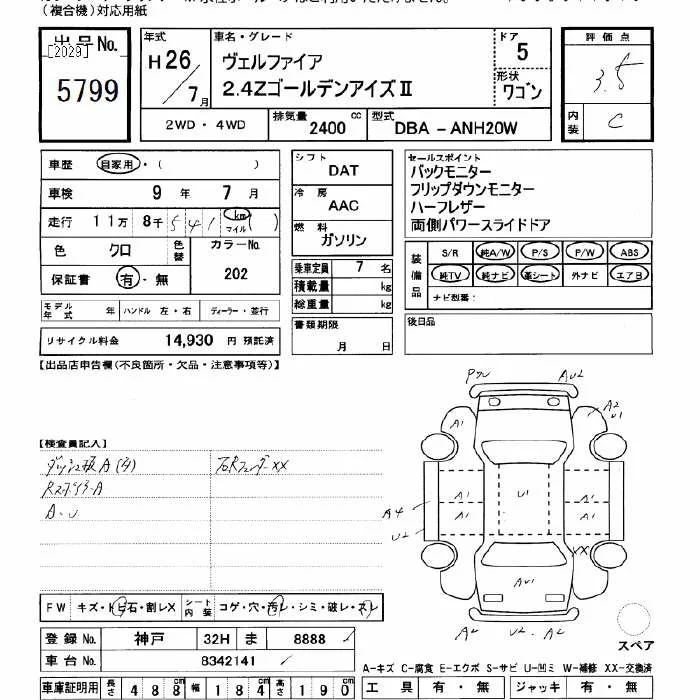 (複合機)対応用紙
出品No.
[2029]
5799
年式
H26/7月
車名・グレード
ヴェルファイア
2.4ZゴールデンアイズⅡ
ドア
5
形状
ワゴン
2WD・4WD
排気量 2400 cc
型式 DBA-ANH20W
評価点
3.5
内装
C
車歴 自家用・( )
車検 9年 7月
走行 11万 8千 541 km マイル ( )
色 クロ 色替 カラーNo. 202
保証書 有・無
モデル年式 年 ハンドル 左・右 ディーラー・並行
リサイクル料金 14,930 円 預託済
シフト DAT
冷房 AAC
燃料 ガソリン
乗車定員 7 名
積載量 kg
総重量 kg
書類期限
月 日
セールスポイント
バックモニター
フリップダウンモニター
ハーフレザー
両側パワースライドドア
装備品
S/R 純A/W P/S P/W ABS
純TV 純ナビ 革シート 外ナビ エアB
ナビ型番:
後日品
【出品店申告欄(不良箇所・欠品・注意事項等)】
【検査員記入】
RステップA
A・U
A1
A2
U1
AU2
A1
A1
A1
U1
A1
A1
A4
U2
XX
AU1
A2
U2
A2
スペア
FW キズ・トビ石・割レX
シート内装 コゲ・穴・汚レ・シミ・破レ・スレ
登録No. 神戸 32H ま 8888
車台No. 8342141
車庫証明用 長さ 488cm 幅 184cm 高さ 190cm
A-キズ C-腐食 E-エクボ S-サビ U-凹ミ W-補修 XX-交換済
工具 有・無 ジャッキ 有・無